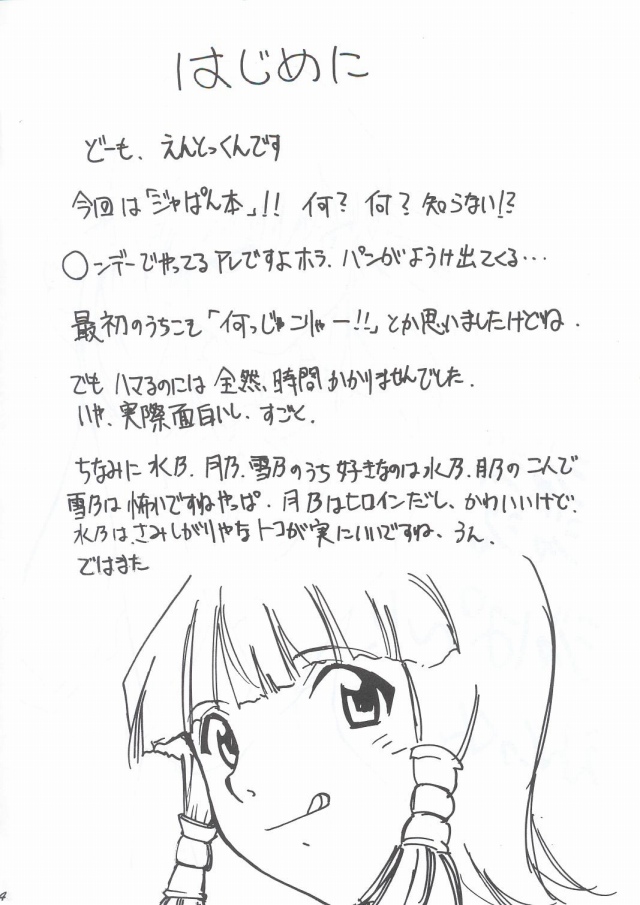 はじめに
どーも、えんとっくんです
今回は「ジャぱん本」!! 何? 何? 知らない!?
○ンデーでやってるアレですよホラ、パンがようけ出てくる…
最初のうちこそ「何っじゃこりゃー!!」とか思いましたけどね.
でもハマるのには全然、時間かかりませんでした.
いや、実際面白いし、すごと.
ちなみに水乃、月乃、雪乃のうち好きなのは水乃、月乃の二人で
雪乃は怖いですねやっぱ. 月乃はヒロインだし、かわいいけど.
水乃は、さみしがりやなトコが実にいいですね、うん.
ではまた
4